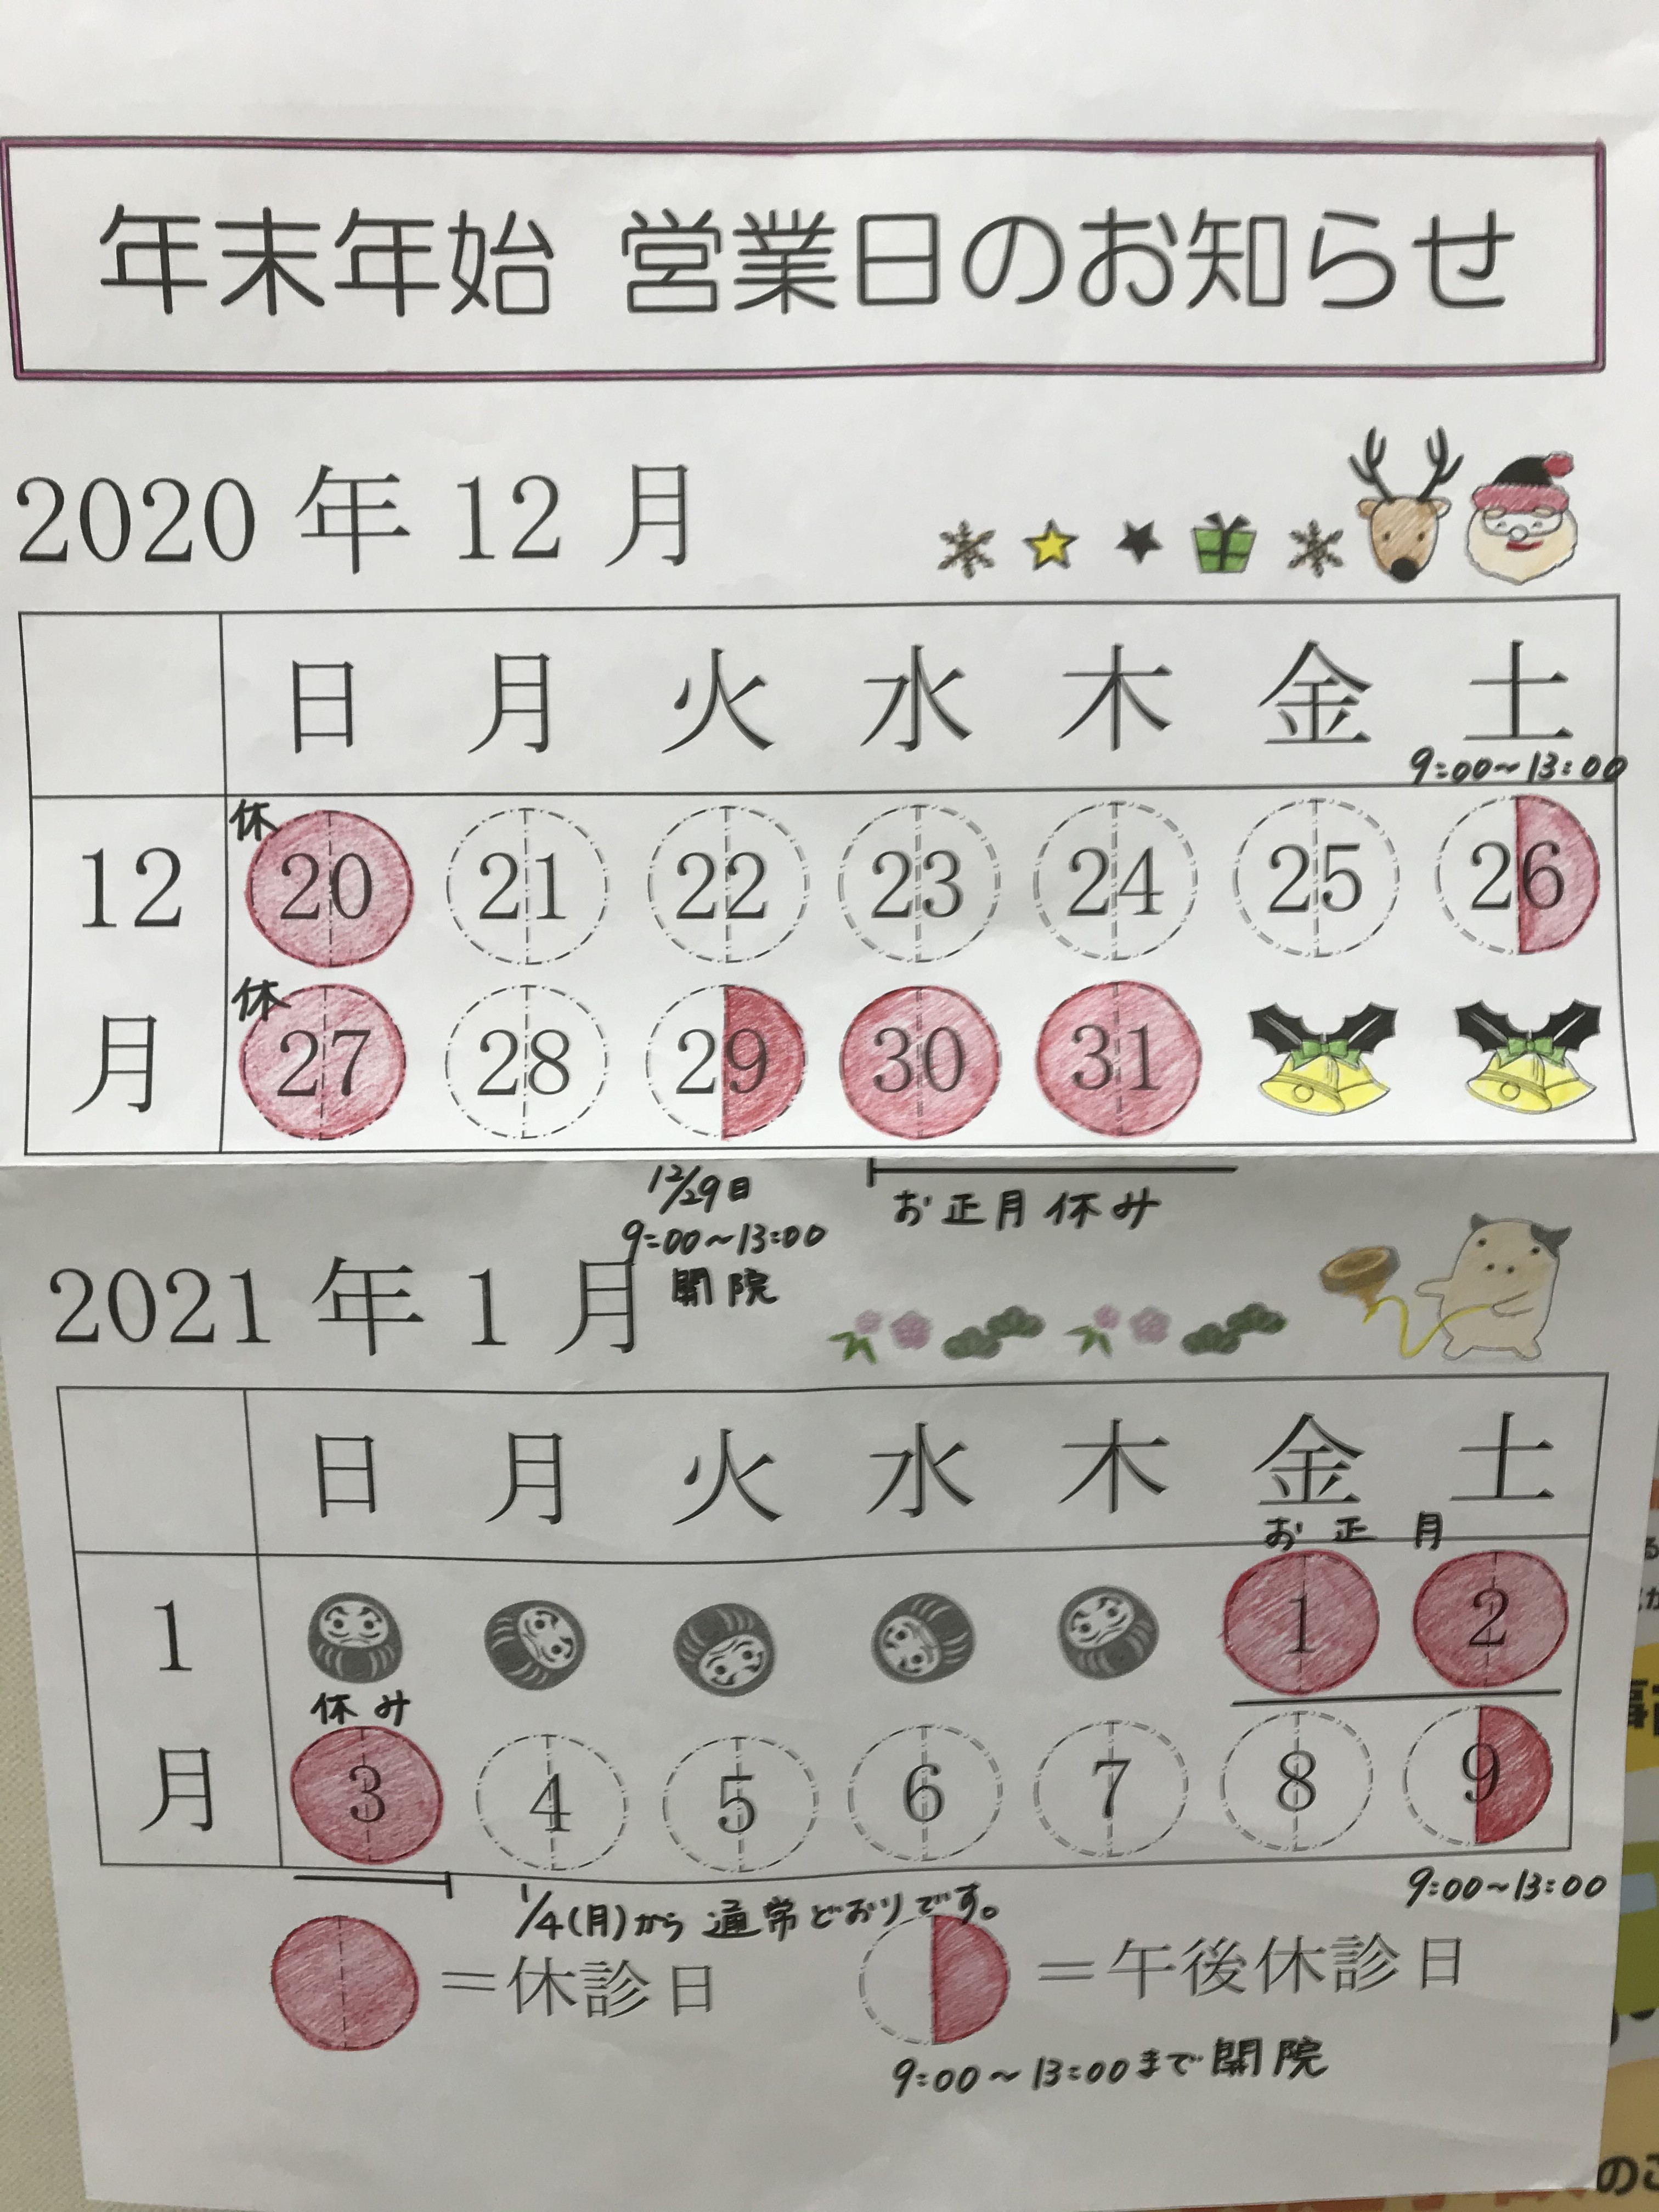 年末年始 営業日のお知らせ
2020年12月
日 月 火 水 木 金 土
9:00~13:00
12月
休 20 21 22 23 24 25 26
休 27 28 29 30 31
12/29日
9:00~13:00
開院
お正月休み
2021年1月
日 月 火 水 木 金 土
お正月
1月
1 2
休み
3 4 5 6 7 8 9
9:00~13:00
1/4(月)から 通常どおりです。
=休診日
=午後休診日
9:00~13:00まで開院